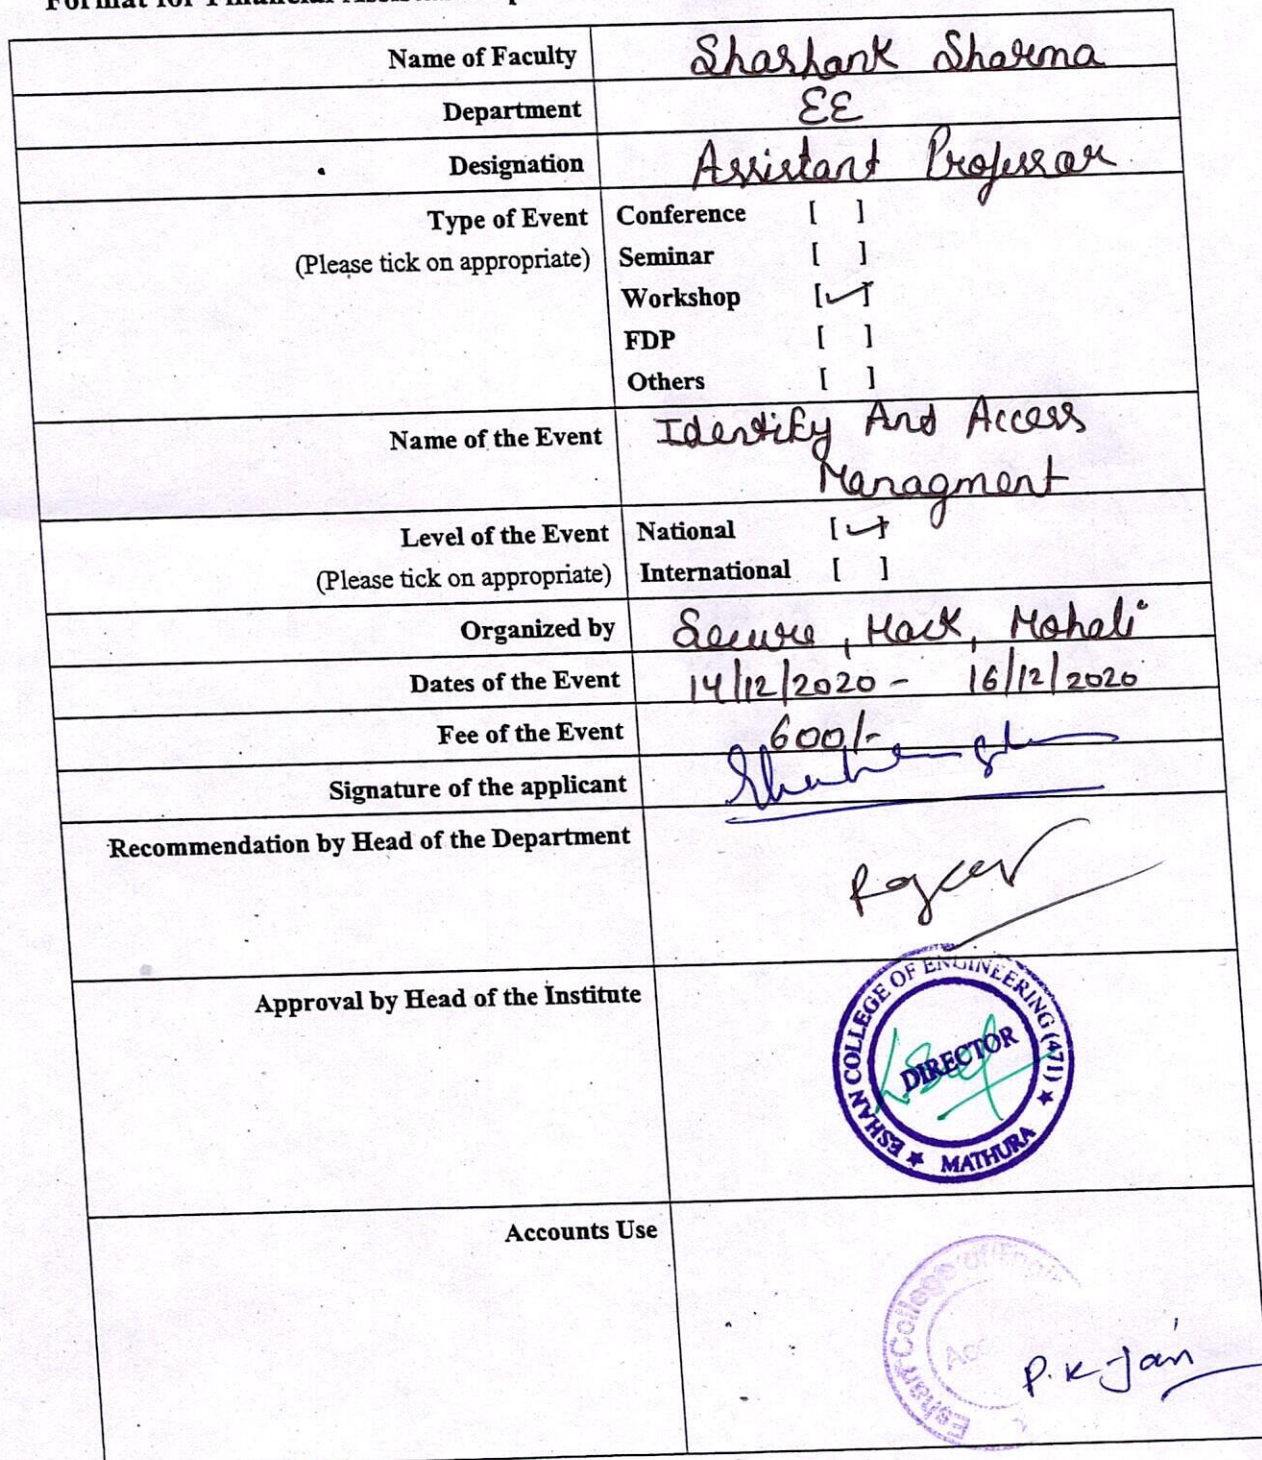 Name of Faculty Shashank Sharma
Department EE
Designation Assistant Professor
Type of Event Conference [ ]
(Please tick on appropriate) Seminar [ ]
Workshop [✓]
FDP [ ]
Others [ ]
Name of the Event Identify And Access
Managment
Level of the Event National [✓]
(Please tick on appropriate) International [ ]
Organized by Secure, Hack, Mohali
Dates of the Event 14/12/2020 - 16/12/2020
Fee of the Event 600/-
Signature of the applicant
Recommendation by Head of the Department
Approval by Head of the Institute
ESHAN COLLEGE OF ENGINEERING (471)
DIRECTOR
MATHURA
Accounts Use
Eshan College of
P.K Jain